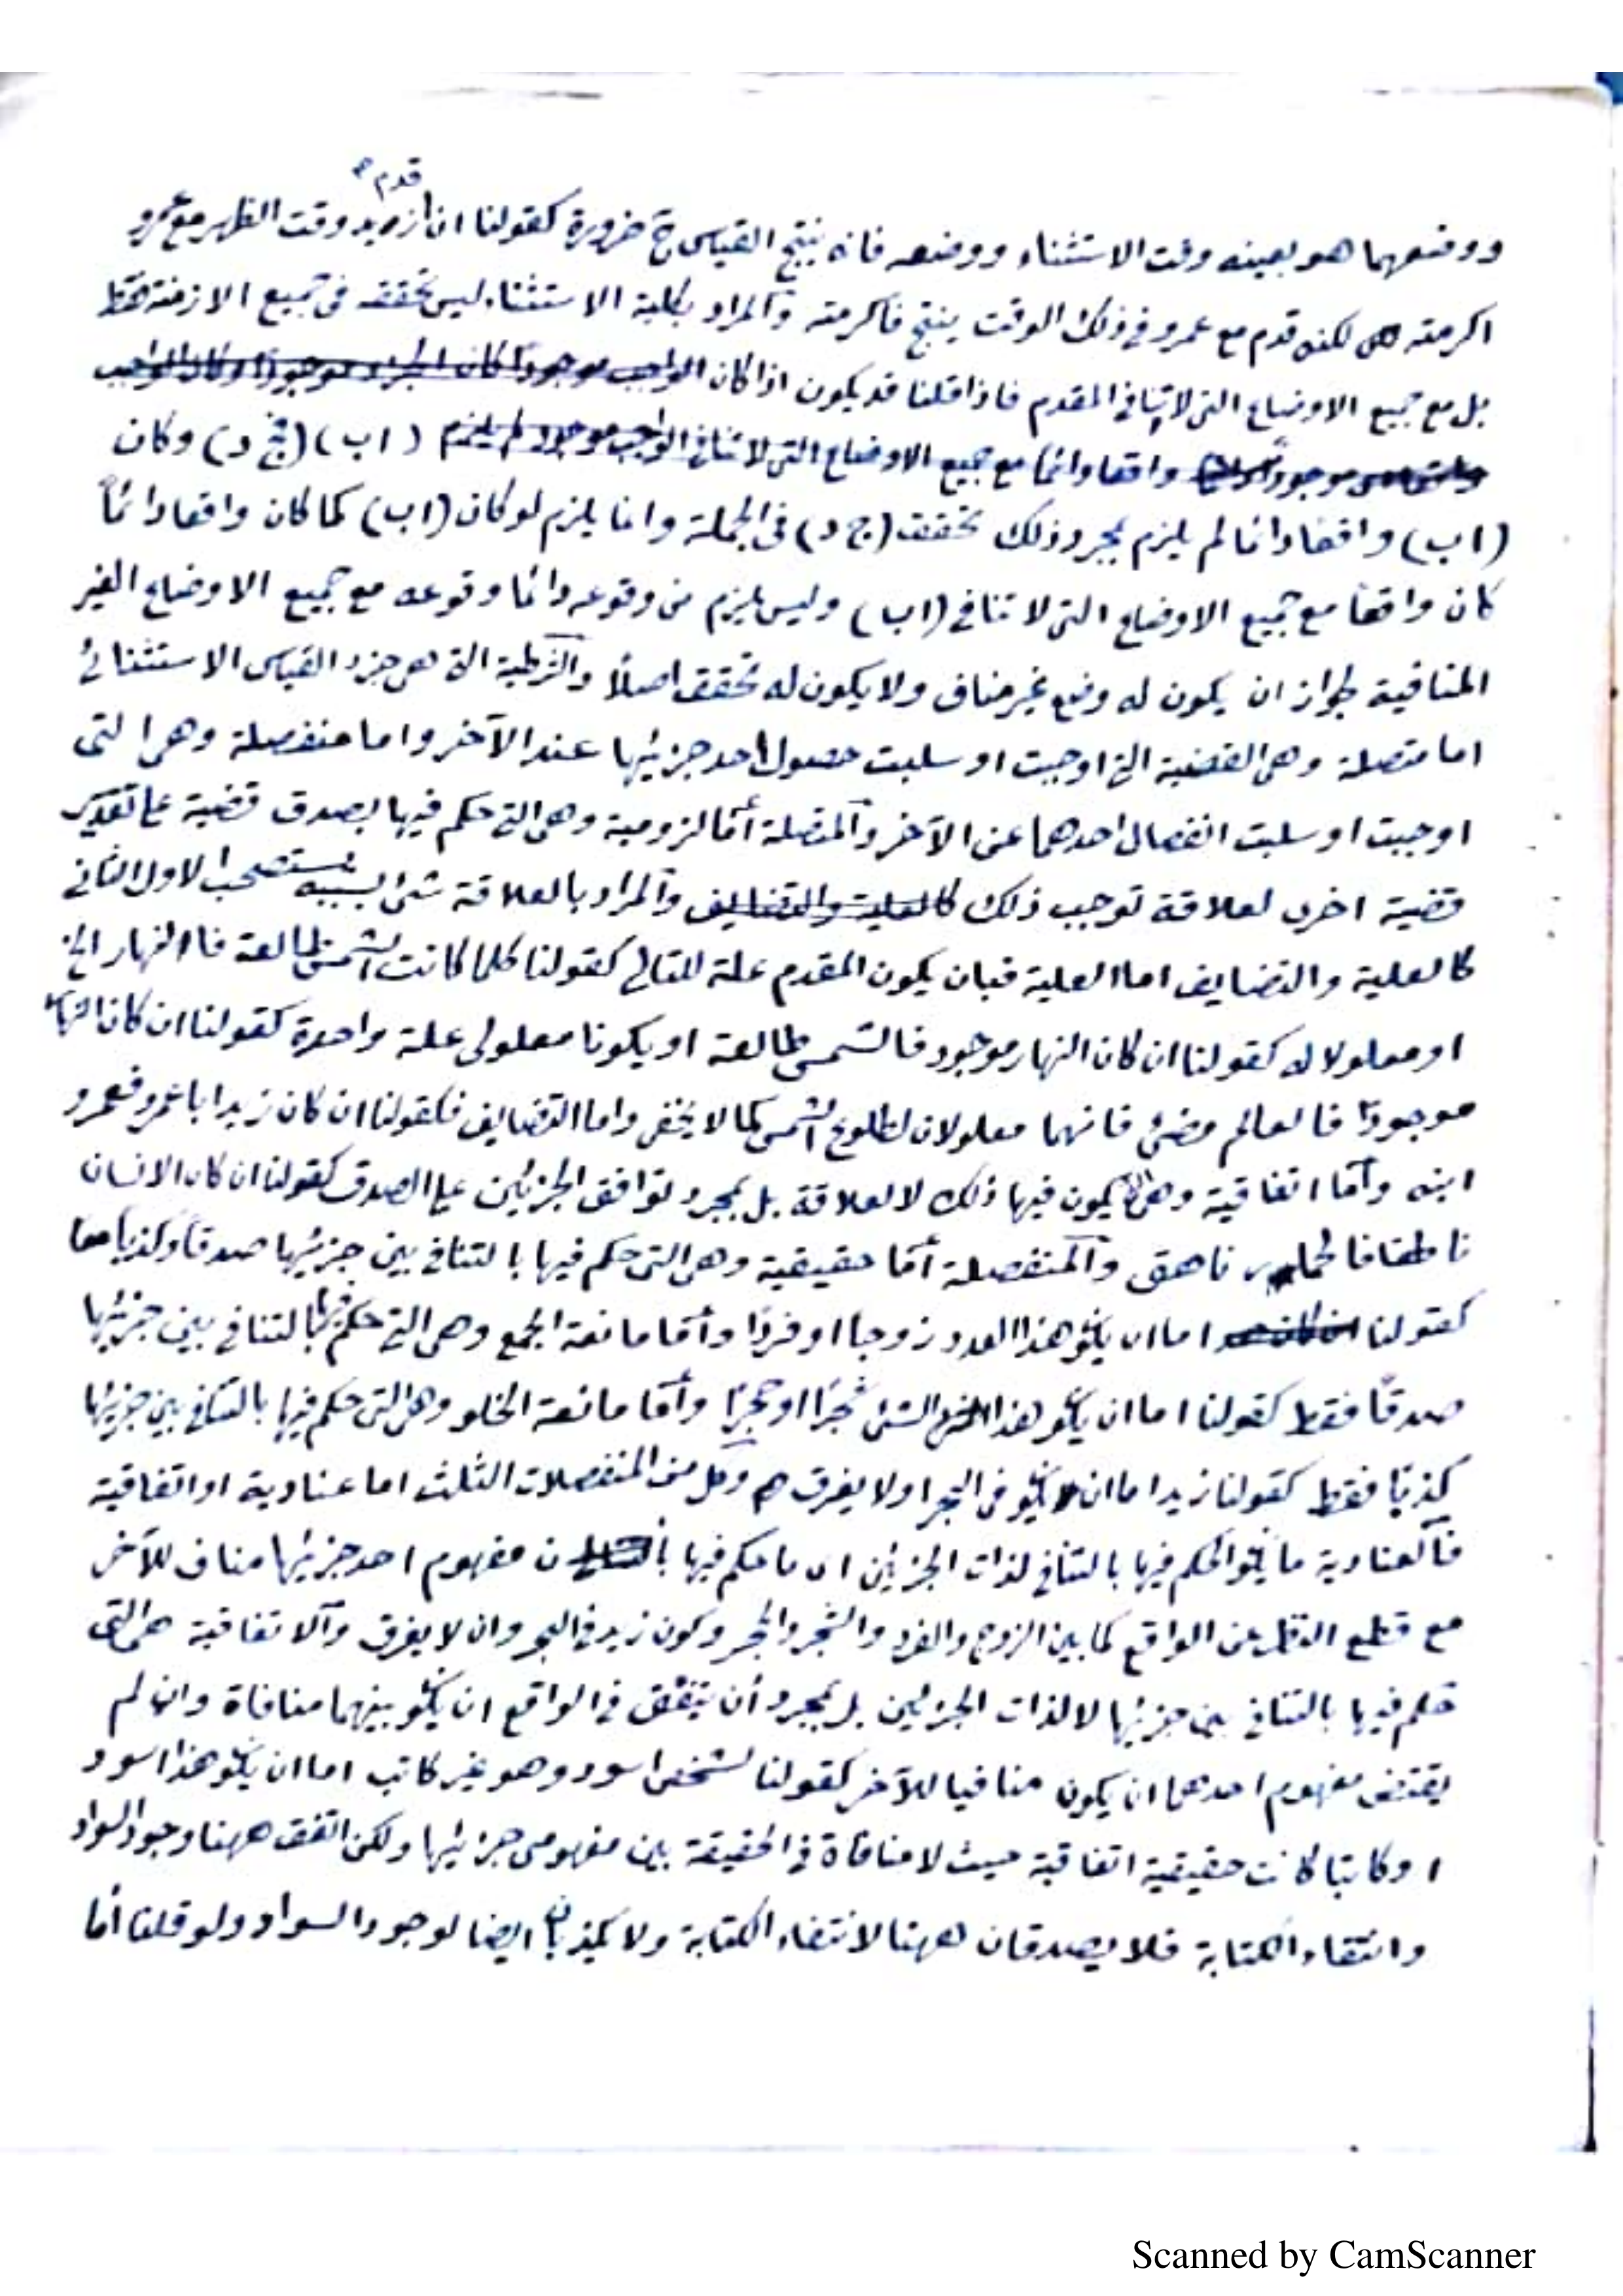 قدم
ووضعهما هو بعينه وقت الاستثناء ووضعه فانه ينتج القياس ح ضرورة كقولنا ان زيد وقت الظهر مع عمرو
اكرمته لكنه قدم مع عمرو في ذلك الوقت ينتج فاكرمته والمراد بكلية الاستثناء ليس تحققه في جميع الازمنة فقط
بل مع جميع الاوضاع التى لا تنافي المقدم فاذا قلنا قد يكون اذا كان الواجب موجودا كان الجزء موجودا وكان الواجب
موجودا واقعا دائما مع جميع الاوضاع التى لا تنافي الواجب موجود لم يلزم (اب) (فج د) وكان
(اب) واقعا دائما لم يلزم بمجرد ذلك تحقق (ج د) في الجملة وانما يلزم لو كان (اب) كما كان واقعا دائماً
كان واقعا مع جميع الاوضاع التى لا تنافي (اب) وليس يلزم من وقوعه دائما وقوعه مع جميع الاوضاع الغير
المنافية لجواز ان يكون له وضع غير مناف ولا يكون له تحقق اصلاً والشرطية التى هى جزء القياس الاستثنائى
اما متصلة وهى القضية التى اوجبت او سلبت حصول احد جزئيها عند الآخر واما منفصلة وهى التى
اوجبت او سلبت انفصال احدهما عن الآخر والمتصلة أما لزومية وهى التى حكم فيها بصدق قضية على تقدير
قضية اخرى لعلاقة توجب ذلك كالعلية والتضايف والمراد بالعلاقة شئ بسببه يستصحب الاول الثانى
كالعلية والتضايف اما العلية فبان يكون المقدم علة للتالى كقولنا كلما كانت الشمس طالعة فاالنهار الخ
او معلولا له كقولنا ان كان النهار موجود فالشمس طالعة او يكونا معلولى علة واحدة كقولنا ان كان النهار
موجوداً فالعالم مضئ فانهما معلولان لطلوع الشمس كما لا يخفى واما التضايف فكقولنا ان كان زيد ابا عمرو فعمرو
ابنه وأما اتفاقية وهى التى يكون فيها ذلك لا لعلاقة بل بمجرد توافق الجزئين على الصدق كقولنا ان كان الانسان
ناطقا فالحمار ناهق والمنفصلة أما حقيقية وهى التى حكم فيها بالتنافى بين جزئيها صدقاً وكذباً معا
كقولنا اما ان يكو هذا العدد زوجا او فردًا وأما مانعة الجمع وهى التى حكم فيها بالتنافى بين جزئيها
صدقًا فقط كقولنا اما ان يكو هذا الشئ شجرًا او حجرًا وأما مانعة الخلو وهى التى حكم فيها بالتنافى بين جزئيها
كذبًا فقط كقولنا زيد اما ان يكو فى البحر او لا يغرق وكل من المنفصلات الثلث اما عنادية او اتفاقية
فالعنادية ما يكو الحكم فيها بالتنافى لذات الجزئين اى ما حكم فيها بأن مفهوم احد جزئيها مناف للآخر
مع قطع النظر عن الواقع كما بين الزوج والفرد والشجر والحجر وكون زيد فى البحر وان لا يغرق والاتفاقية هى التى
حكم فيها بالتنافى بين جزئيها لا لذات الجزئين بل بمجرد أن يتفق فى الواقع ان يكو بينهما منافاة وان لم
يقتض مفهوم احدهما ان يكون منافيا للآخر كقولنا لشخص اسود وهو غير كاتب اما ان يكو هذا اسود
او كاتبا كانت حقيقية اتفاقية حيث لا منافاة فى الحقيقة بين مفهومى جزئيها ولكن اتفق ههنا وجود السواد
وانتفاء الكتابة فلا يصدقان ههنا لانتفاء الكتابة ولا يكذبان ايضا لوجود السواد ولو قلنا أما
Scanned by CamScanner